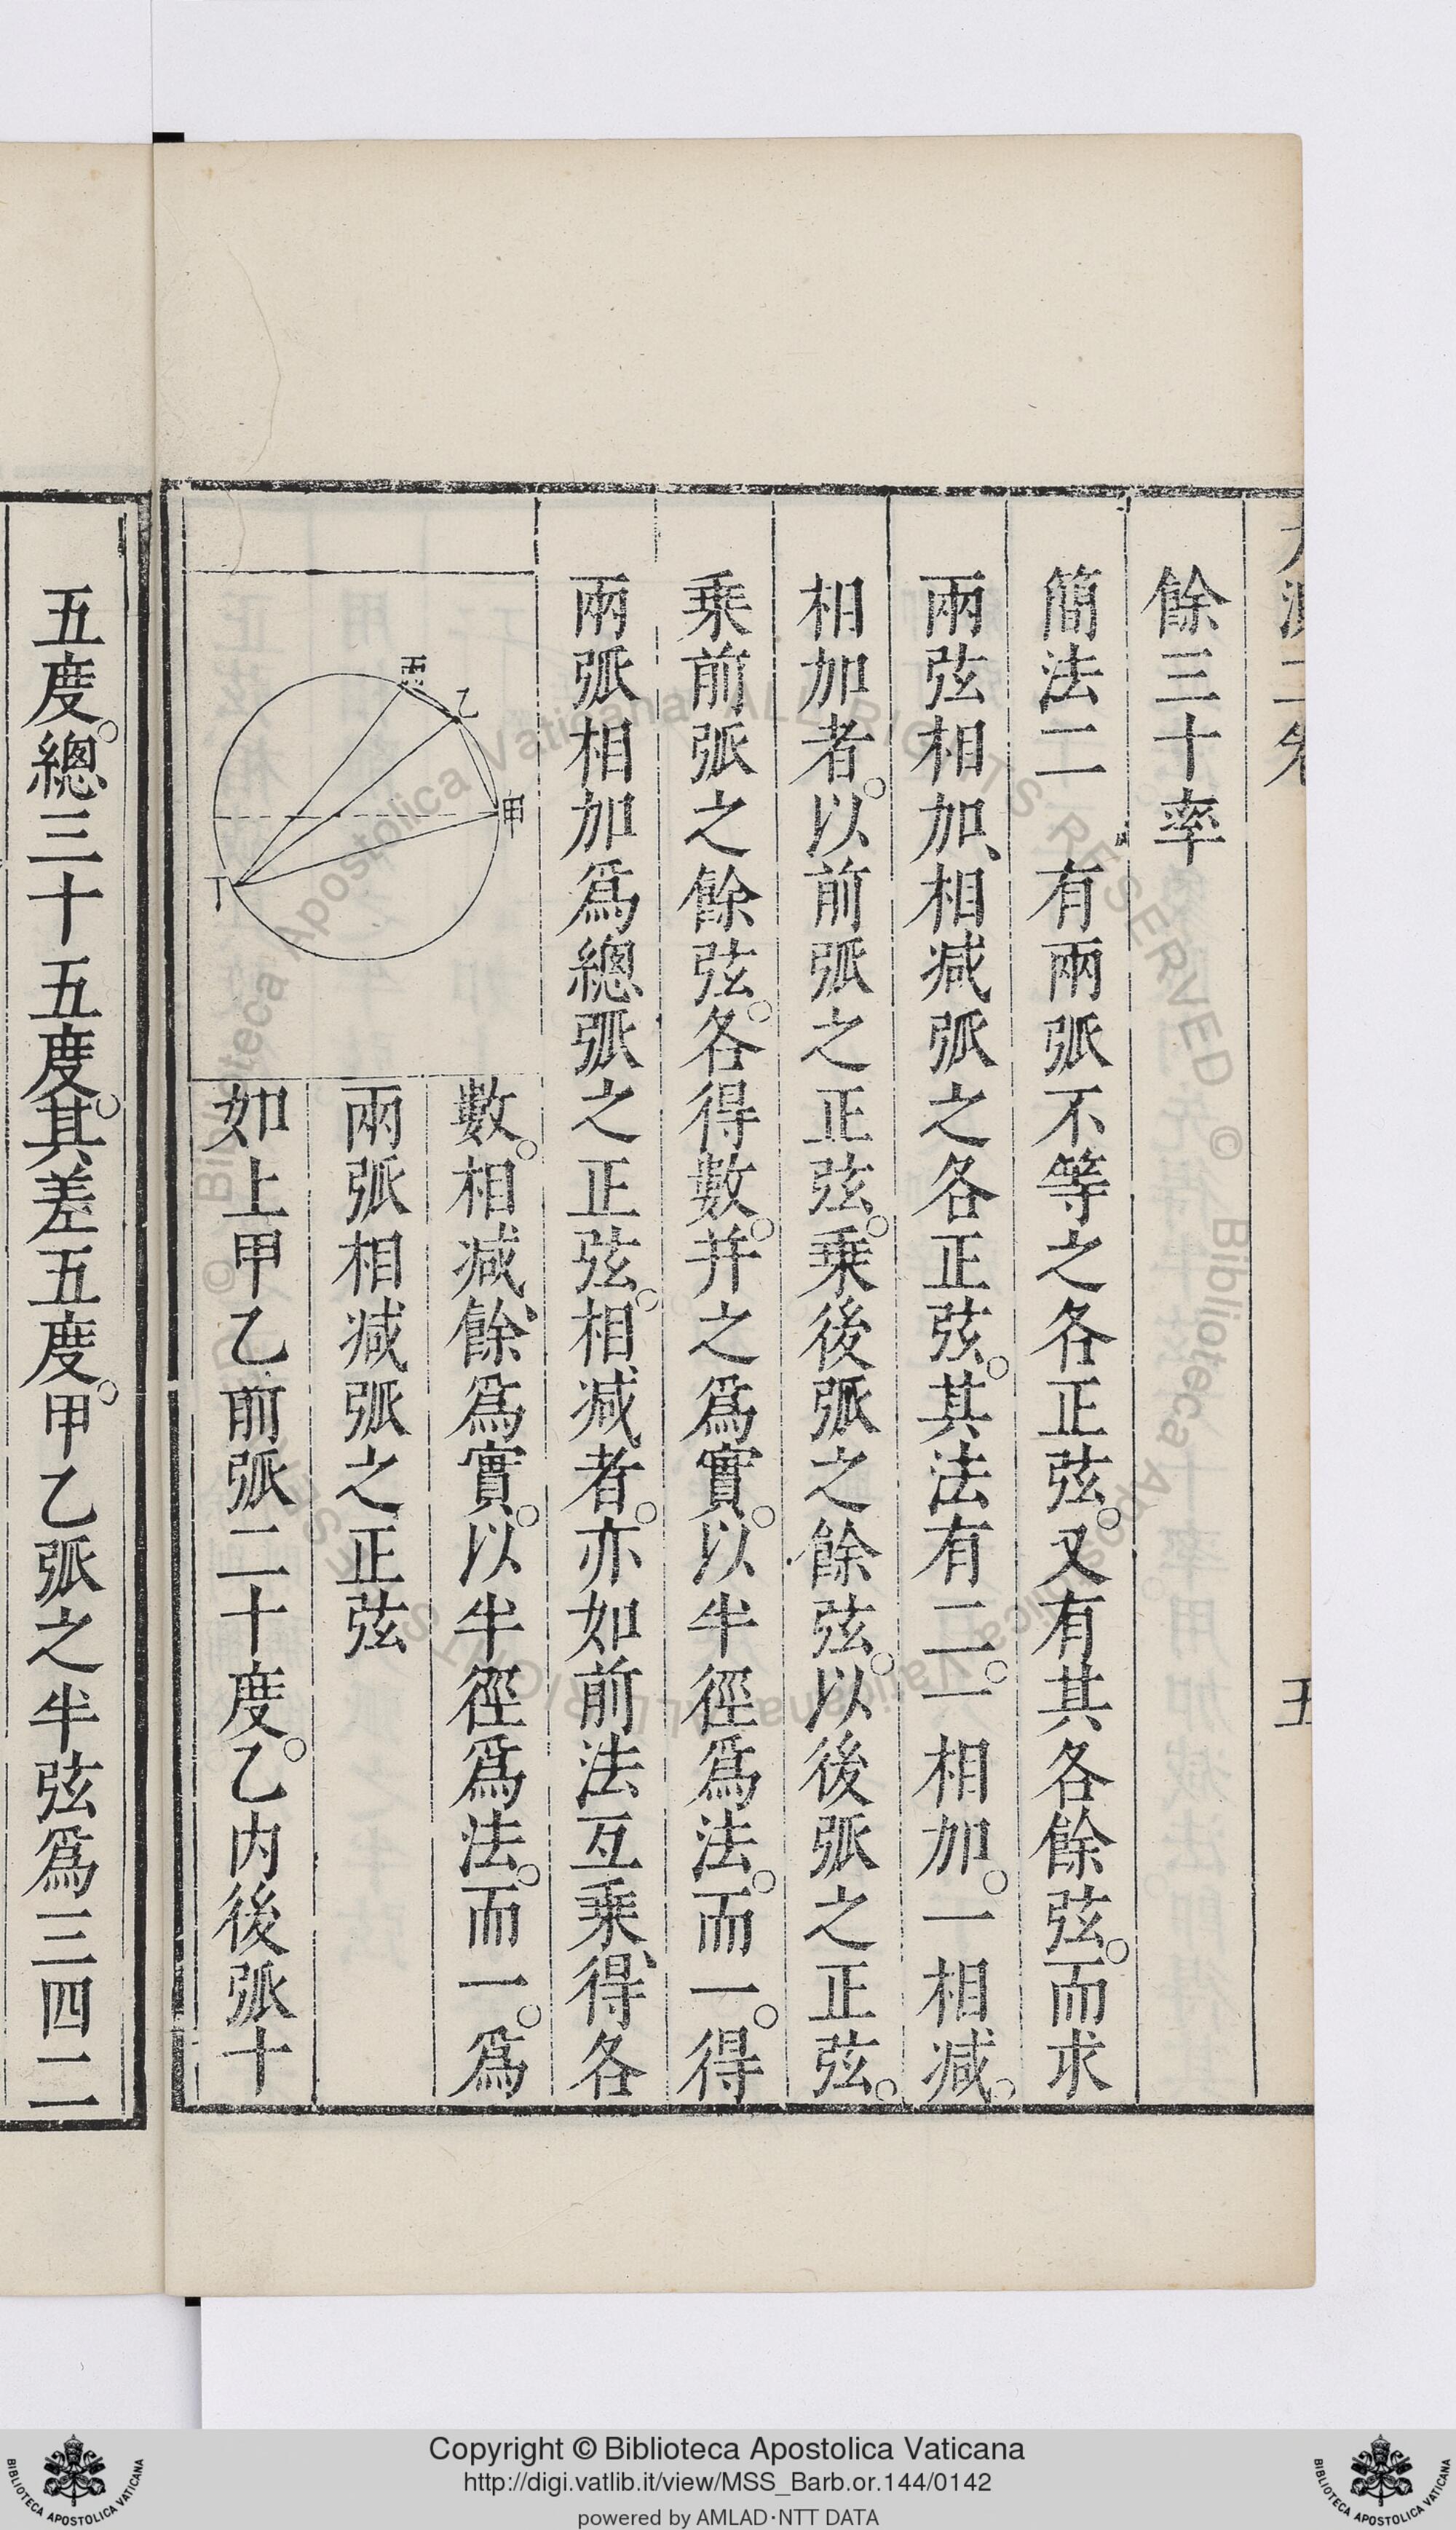 餘三十率
簡法二　有兩弧不等之各正弦。又有其各餘弦。而求
兩弦相加、相减弧之各正弦。其法有二。一相加。一相减。
相加者。以前弧之正弦。乗後弧之餘弦。以後弧之正弦。
乗前弧之餘弦。各得數。并之爲實。以半徑爲法。而一。得
兩弧相加爲總弧之正弦。相减者。亦如前法互乗、得各
數。相减、餘爲實。以半徑爲法。而一。爲
兩弧相减弧之正弦
如上甲乙前弧二十度。乙内後弧十
丙
乙
甲
丁
五
五度。總三十五度。其差五度。甲乙弧之半弦爲三四二
Copyright © Biblioteca Apostolica Vaticana
http://digi.vatlib.it/view/MSS_Barb.or.144/0142
powered by AMLAD·NTT DATA
BIBLIOTECA APOSTOLICA VATICANA
BIBLIOTECA APOSTOLICA VATICANA